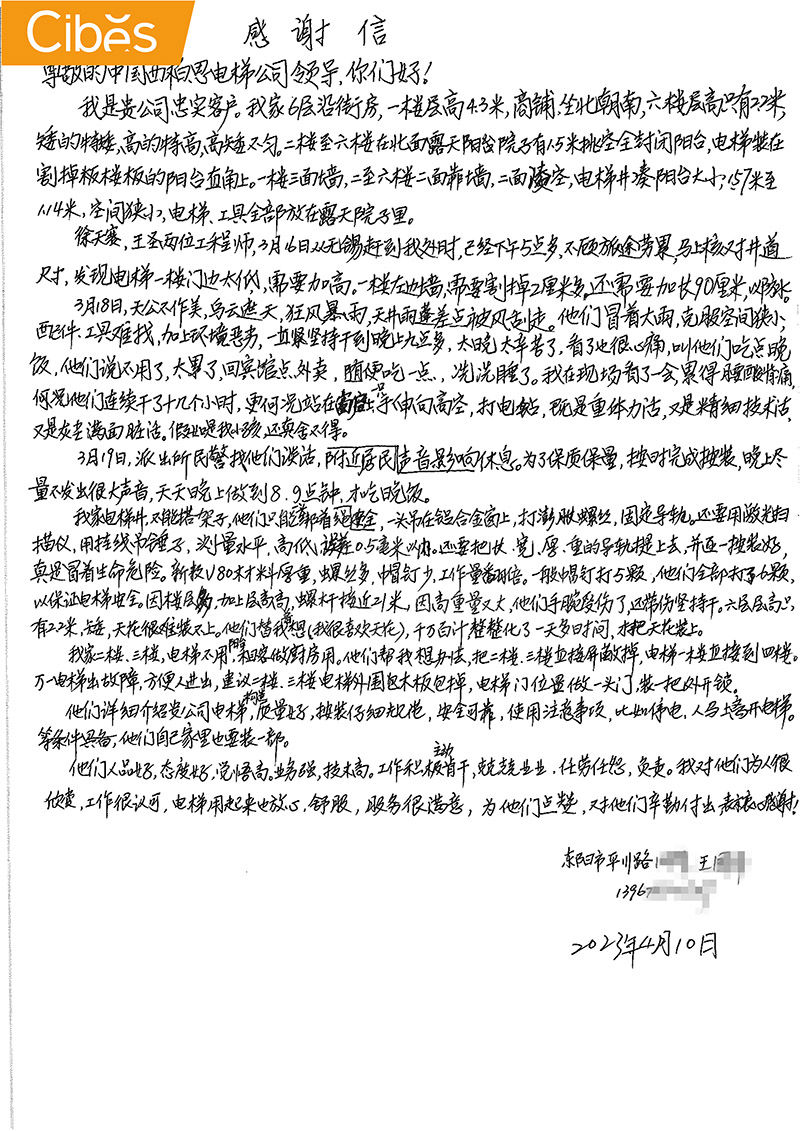 Cibes
感谢信
尊敬的中国西柏思电梯公司领导,你们好!
我是贵公司忠实客户。我家6层沿街房,一楼层高4.3米,商铺.坐北朝南,六楼层高只有2.2米,
矮的特矮,高的特高,高矮不匀。二楼至六楼在北面露天阳台院子有1.5米挑空全封闭阳台,电梯装在
割掉板楼板的阳台直角上。一楼三面墙,二至六楼二面靠墙,二面凌空,电梯井凑阳台大小,1.57米至
1.14米,空间狭小,电梯、工具全部放在露天院子里。
徐天赛,王圣两位工程师,3月16日从无锡赶到我处时,已经下午5点多,不顾旅途劳累,马上核对井道
尺寸,发现电梯一楼门边太低,需要加高。一楼左边墙,需要割掉2厘米多。还需要加长90厘米,以防水。
3月18日,天公不作美,乌云遮天,狂风暴雨,天井雨蓬差点被风刮走。他们冒着大雨,克服空间狭小,
配件.工具难找,加上环境恶劣,一直紧坚持干到晚上九点多,太晚太辛苦了,看了也很心痛,叫他们吃点晚
饭,他们说不用了,太累了,回宾馆点外卖,随便吃一点,洗洗睡了。我在现场看了一会,累得腰酸背痛,
何况他们连续干了十几个小时,更何况站在窗台上双手伸向高空,打电钻,既是重体力活,又是精细技术活,
又是灰尘满面脏活。假如是我小孩,还真舍不得。
3月19日,派出所民警找他们谈话,附近居民声音影响休息。为了保质保量,按时完成按装,晚上尽
量不发出很大声音,天天晚上做到8.9点钟,才吃晚饭。
我家电梯井不能搭架子,他们只能绑着绳全,一头吊在铝合金窗上,打澎胀螺丝,固定导轨。还要用激光扫
描仪,用挂线吊锤子,测量水平,高低误差0.5毫米以内。还要把长.宽.厚.重的导轨提上去,并逐一按装好,
真是冒着生命危险。新板V80材料厚重,螺丝多,帽钉少,工作量翻倍。一般帽钉打5颗,他们全部打了6颗,
以保证电梯安全。因楼层多,加上层高高,螺杆接近21米,因高重量又大,他们手腕受伤了,还带伤坚持干。六层层高只
有2.2米,矮,天花很难装不上。他们替我着想(我很喜欢天花),千方百计整整化了一天多时间,才把天花装上。
我家二楼、三楼,电梯不用,租客做厨房用。他们帮我想办法,把二楼、三楼直接屏蔽掉,电梯一楼直接到四楼。
万一电梯出故障,方便人进出,建议二楼、三楼电梯外围包木板包掉,电梯门位置做一头门,装一把外开锁。
他们详细介绍贵公司电梯构造,质量好,按装仔细规范,安全可靠,使用注意事项,比如停电,人马上离开电梯。
等条件具备,他们自己家里也要装一部。
他们人品好,态度好,觉悟高。业务强,技术高。工作积极主动肯干,兢兢业业.任劳任怨,负责。我对他们为人很
欣赏,工作很认可,电梯用起来也放心.舒服,服务很满意,为他们点赞,对他们辛勤付出表衷心感谢!
东阳市平川路 王
13967
2023年4月10日